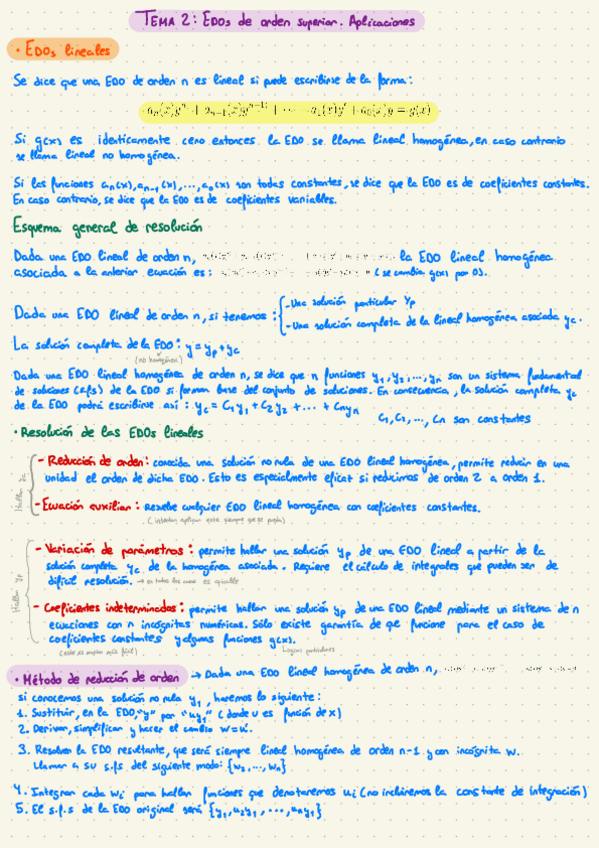 TEMA 2: EDOs de orden superior. Aplicaciones
• EDOs lineales
Se dice que una EDO de orden n es lineal si puede escribirse de la forma:
aₙ(x)yⁿ + aₙ₋₁(x)yⁿ⁻¹ + ··· a₁(x)y' + a₀(x)y = g(x)
Si g(x) es identicamente cero entonces la EDO se llama lineal homogénea, en caso contrario
se llama lineal no homogénea.
Si las funciones aₙ(x), aₙ₋₁(x), ..., a₀(x) son todas constantes, se dice que la EDO es de coeficientes constantes.
En caso contrario, se dice que la EDO es de coeficientes variables.
Esquema general de resolución
Dada una EDO lineal de orden n, la EDO lineal homogénea
asociada a la anterior ecuación es: (se cambia g(x) por 0).
Dada una EDO lineal de orden n, si tenemos:
- Una solución particular yp
- Una solución completa de la lineal homogénea asociada yc.
La solución completa de la EDO: y = yp + yc
(no homogénea)
Dada una EDO lineal homogénea de orden n, se dice que n funciones y₁, y₂, ..., yn son un sistema fundamental
de soluciones (s.f.s) de la EDO si forman base del conjunto de soluciones. En consecuencia, la solución completa yc
de la EDO podrá escribirse así: yc = C₁y₁ + C₂y₂ + ... + Cnyn
C₁, C₂, ..., Cn son constantes
• Resolución de las EDOs lineales
Hallar yc
- Reducción de orden: conocida una solución no nula de una EDO lineal homogénea, permite reducir en una
unidad el orden de dicha EDO. Esto es especialmente eficaz si reducimos de orden 2 a orden 1.
- Ecuación auxiliar: Resuelve cualquier EDO lineal homogénea con coeficientes constantes.
(intentar aplicar este siempre que se pueda)
Hallar yp
- Variación de parámetros: permite hallar una solución yp de una EDO lineal a partir de la
solución completa yc de la homogénea asociada. Requiere el cálculo de integrales que pueden ser de
difícil resolución. → en todos los casos es aplicable
- Coeficientes indeterminados: permite hallar una solución yp de una EDO lineal mediante un sistema de n
ecuaciones con n incógnitas numéricas. Sólo existe garantía de qe funcione para el caso de
coeficientes constantes y algunas funciones g(x).
(este es mucho más fácil) particulares
• Método de reducción de orden → Dada una EDO lineal homogénea de orden n,
si conocemos una solución no nula y₁, haremos lo siguiente:
1. Sustituir, en la EDO, "y" por "uy₁" (donde u es función de x)
2. Derivar, simplificar y hacer el cambio w = u'.
3. Resolver la EDO resultante, que será siempre lineal homogénea de orden n-1 y con incógnita w.
Llamar a su s.f.s del siguiente modo: {w₂, ..., wn}
4. Integrar cada wi para hallar funciones que denotaremos ui (no incluiremos la constante de integración)
5. El s.f.s de la EDO original será {y₁, u₂y₁, ..., uny₁}